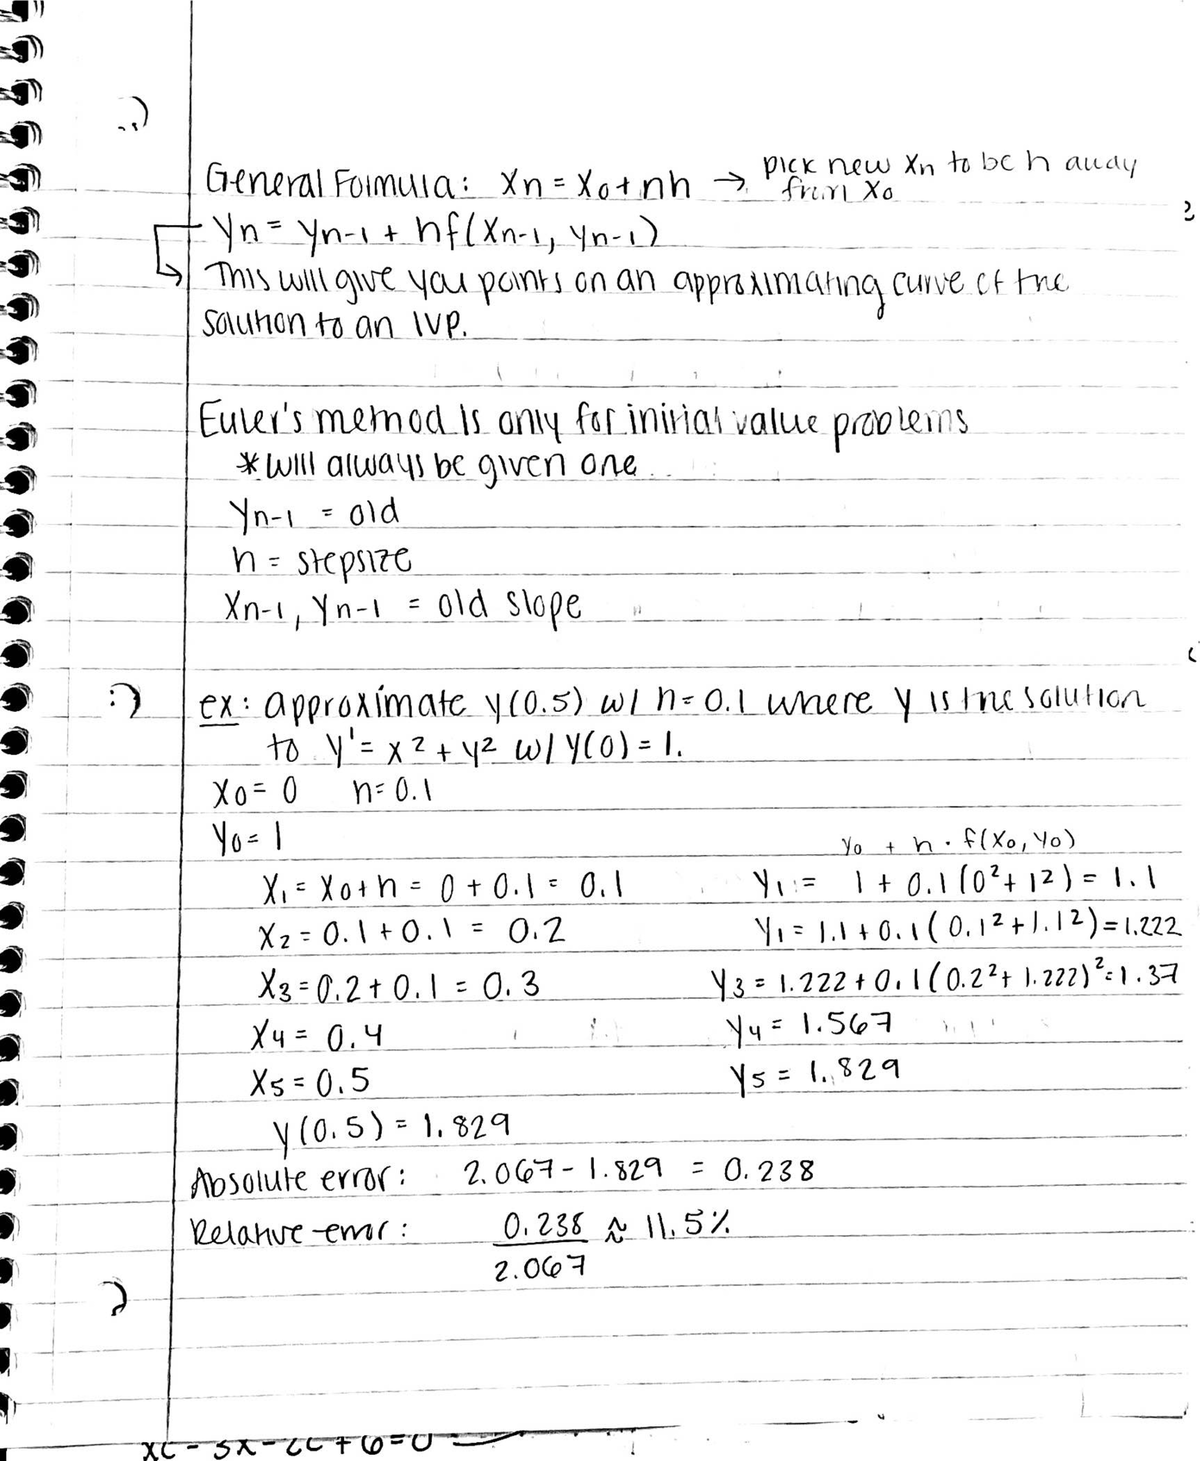 General Formula: Xn = X0 + nh → pick new Xn to be h away
from X0
Yn = Yn-1 + hf(Xn-1, Yn-1)
This will give you points on an approximating curve of the
solution to an IVP.
Euler's method is only for initial value problems
* will always be given one
Yn-1 = old
h = stepsize
Xn-1, Yn-1 = old slope
:) ex: approximate y(0.5) w/ h=0.1 where y is the solution
to y' = x² + y² w/ y(0) = 1.
X0 = 0 h = 0.1
Y0 = 1
Y0 + h · f(X0, Y0)
X1 = X0 + h = 0 + 0.1 = 0.1 Y1 = 1 + 0.1(0² + 1²) = 1.1
X2 = 0.1 + 0.1 = 0.2 Y1 = 1.1 + 0.1(0.1² + 1.1²) = 1.222
X3 = 0.2 + 0.1 = 0.3 Y3 = 1.222 + 0.1(0.2² + 1.222)² = 1.37
X4 = 0.4 Y4 = 1.567
X5 = 0.5 Y5 = 1.829
y(0.5) = 1.829
Absolute error: 2.067 - 1.829 = 0.238
Relative error: 0.238 ≈ 11.5%
2.067